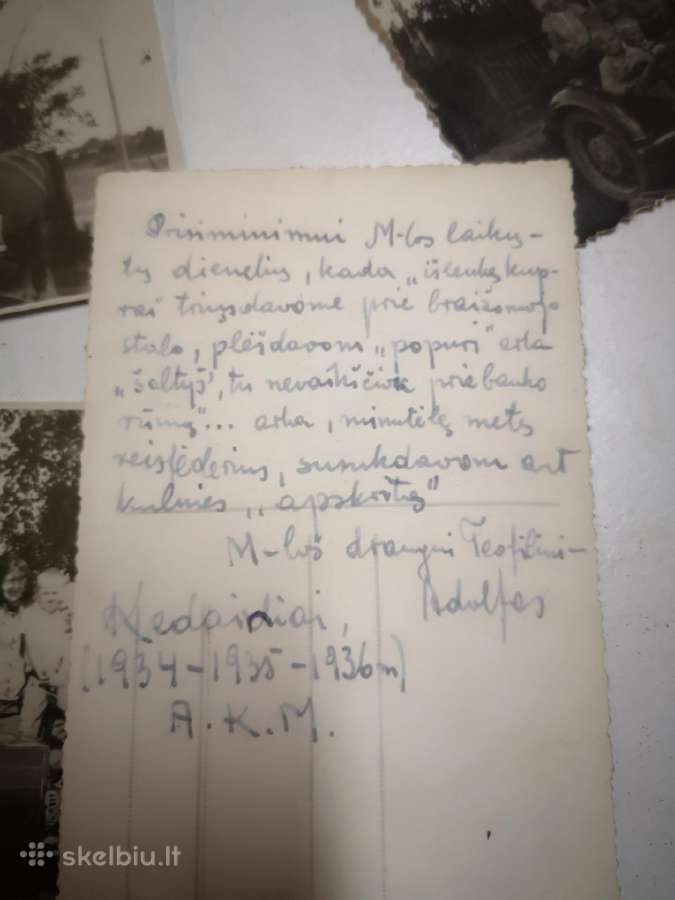 Prisiminimui M-los laikų-
tų dienelių, kada „išlenkę kup-
rai triūsdavome prie braižomojo
stalo, plėšdavom „popuri" arba
prie banko
rūmų"... arba, minutėlę metę
reisfederius, sumikdavom ant
kulnies „apskritę"
M-los draugui Teofiliui-
Adolfas
Kėdainiai,
(1934-1935-1936 m)
A.K.M.
skelbiu.lt